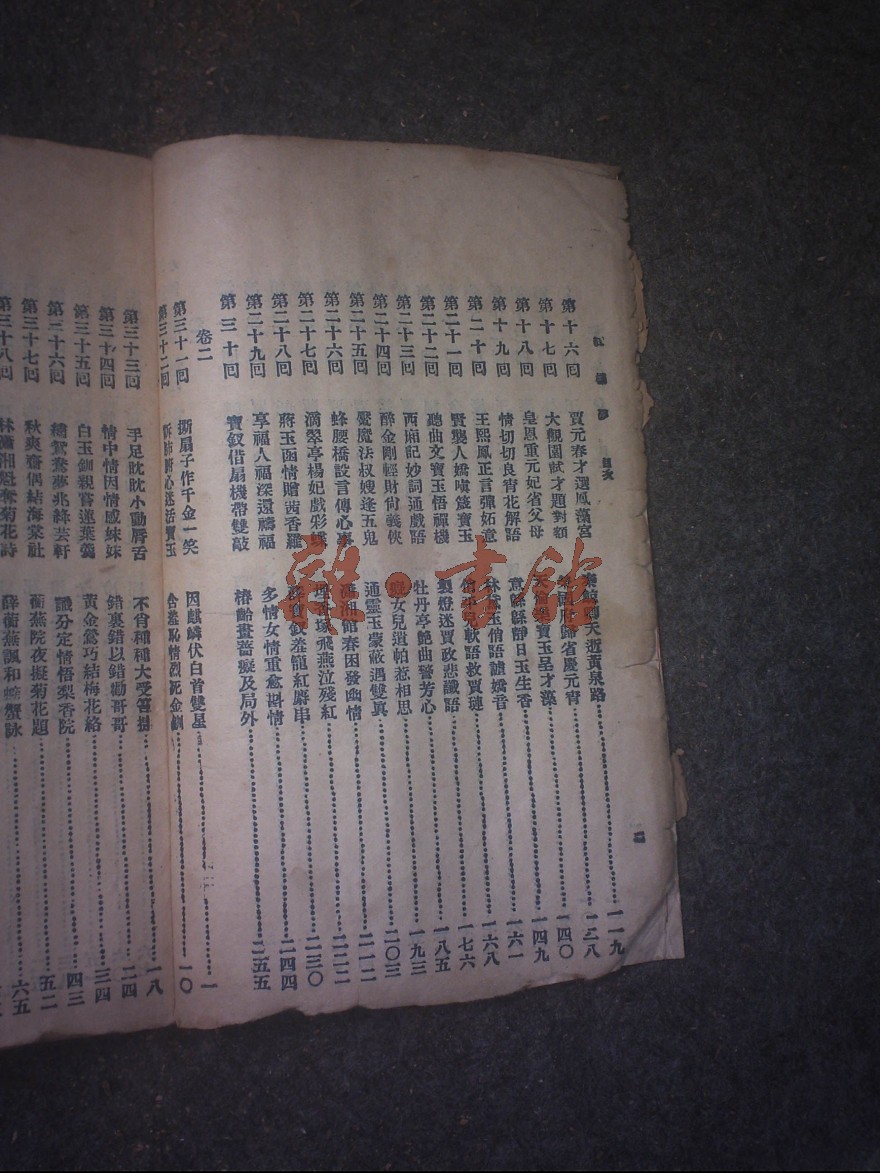 紅樓夢 目次
第十六回 賈元春才選鳳藻宮 秦鯨卿夭逝黃泉路 一一九
第十七回 大觀園試才題對額 榮國府歸省慶元宵 一二八
第十八回 皇恩重元妃省父母 天倫樂寶玉呈才藻 一四〇
第十九回 情切切良宵花解語 意緜緜靜日玉生香 一四九
第二十回 王熙鳳正言彈妬意 林黛玉俏語謔嬌音 一六一
第二十一回 賢襲人嬌嗔箴寶玉 俏平兒軟語救賈璉 一六八
第二十二回 聽曲文寶玉悟禪機 製燈迷賈政悲讖語 一七六
第二十三回 西廂記妙詞通戲語 牡丹亭艶曲警芳心 一八五
第二十四回 醉金剛輕財尙義俠 癡女兒遺帕惹相思 一九三
第二十五回 魘魔法叔嫂逢五鬼 通靈玉蒙蔽遇雙眞 二〇三
第二十六回 蜂腰橋設言傳心事 瀟湘館春困發幽情 二一二
第二十七回 滴翠亭楊妃戲彩蝶 埋香塚飛燕泣殘紅 二二二
第二十八回 蔣玉函情贈茜香羅 薛寶釵羞籠紅麝串 二三〇
第二十九回 享福人福深還禱福 多情女情重愈斟情 二四四
第三十回 寶釵借扇機帶雙敲 椿齡畫薔癡及局外 二五五
卷二
第三十一回 撕扇子作千金一笑 因麒麟伏白首雙星 一
第三十二回 訴肺腑心迷活寶玉 含羞恥情烈死金釧 一〇
第三十三回 手足眈眈小動唇舌 不肖種種大受笞撻 一八
第三十四回 情中情因情感妹妹 錯裏錯以錯勸哥哥 二四
第三十五回 白玉釧親嘗蓮葉羹 黃金鶯巧結梅花絡 三四
第三十六回 繡鴛鴦夢兆絳芸軒 識分定情悟梨香院 四三
第三十七回 秋爽齋偶結海棠社 蘅蕪院夜擬菊花題 五二
第三十八回 林瀟湘魁奪菊花詩 薛蘅蕪諷和螃蟹詠 六五
雜·書館